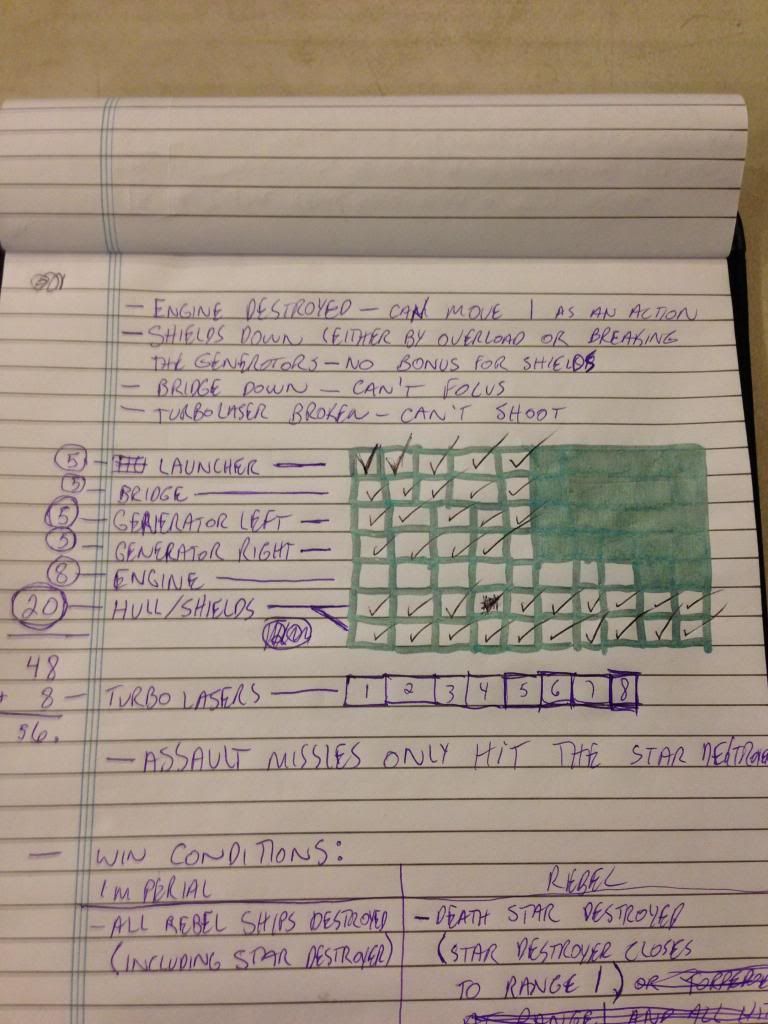 - ENGINE DESTROYED - CAN MOVE 1 AS AN ACTION
- SHIELDS DOWN (EITHER BY OVERLOAD OR BREAKING
THE GENEROTORS - NO BONUS FOR SHIELDS
- BRIDGE DOWN - CAN'T FOCUS
- TURBOLASER BROKEN - CAN'T SHOOT
5 - LAUNCHER -
5 - BRIDGE -
5 - GENERATOR LEFT -
5 - GENERATOR RIGHT -
8 - ENGINE -
20 - HULL/SHIELDS -
48
+ 8 - TURBO LASERS - 1 2 3 4 5 6 7 8
56.
- ASSAULT MISSLES ONLY HIT THE STAR DESTROYE
- WIN CONDITIONS:
IMPERIAL REBEL
- ALL REBEL SHIPS DESTROYED - DEATH STAR DESTROYED
(INCLUDING STAR DESTROYER) (STAR DESTROYER CLOSES
TO RANGE 1) OR TORPEDO
RANGE 1 AND ALL HIT